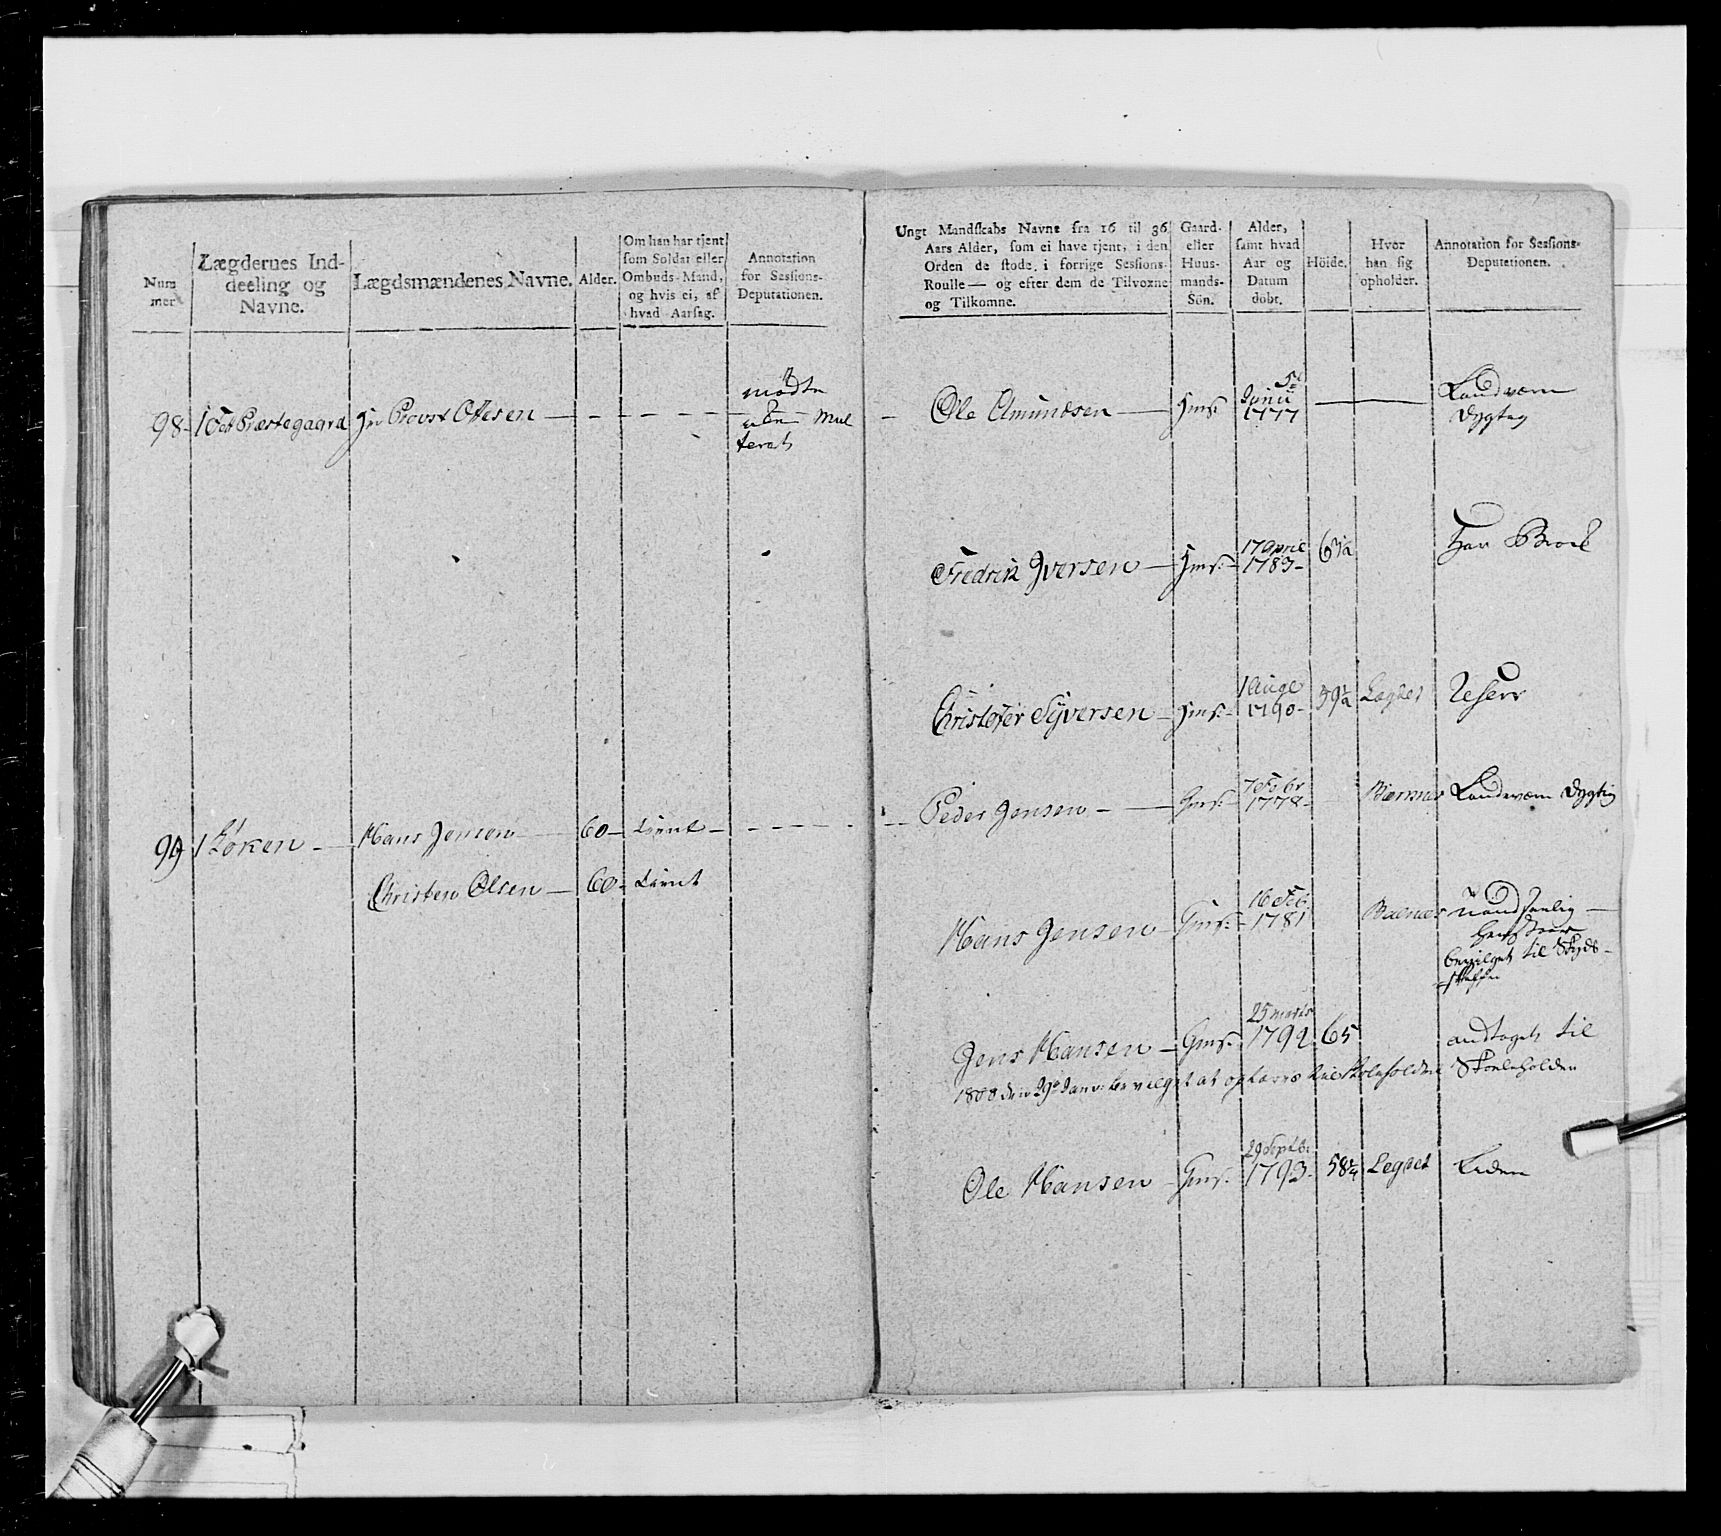 Num
mer
Lægdernes Ind-
deeling og
Navne.
Lægdsmændenes Navne.
Alder.
Om han har tjent
som Soldat eller
Ombuds-Mand,
og hvis ei, af
hvad Aarsag.
Annotation
for Sessions-
Deputationen.
98 1 Fet Præstegaard Hr Provst Ottesen
mødte
Mul
teret
99 1 Løken Hans Jensen 60 tient
Christen Olsen 60 tient
Ungt Mandskabs Navne fra 16 til 36
Aars Alder, som ei have tjent, i den
Orden de stode i forrige Sessions-
Roulle — og efter dem de Tilvoxne
og Tilkomne.
Gaard-
eller
Huus-
mands-
Sön.
Alder,
samt hvad
Aar og
Datum
döbt.
Höide.
Hvor
han sig
opholder.
Annotation for Sessions-
Deputationen.
Ole Amundsen Hmf: 5t Junii 1777 Landværn
dygtig
Fredrik Iversen Hmf: 17 April 1783 Har Brok
Christofer Syversen Hmf: 1 Aug 1790 59½ Legdet Reserv
Peder Jensen Gmf: 7 Febr 1778 Landeværn dygtig
Hans Jensen Gmf: 16 Feb: 1781
bevilget til Skyds-
Jens Hansen Gmf: 25 Marts 1792 65 antaget til
1808 den 29de Janv: bevilget at oplæres til Skoleholder Skoleholder
Ole Hansen Gmf: 29 Septbr: 1793 58¼ Legdet Liden